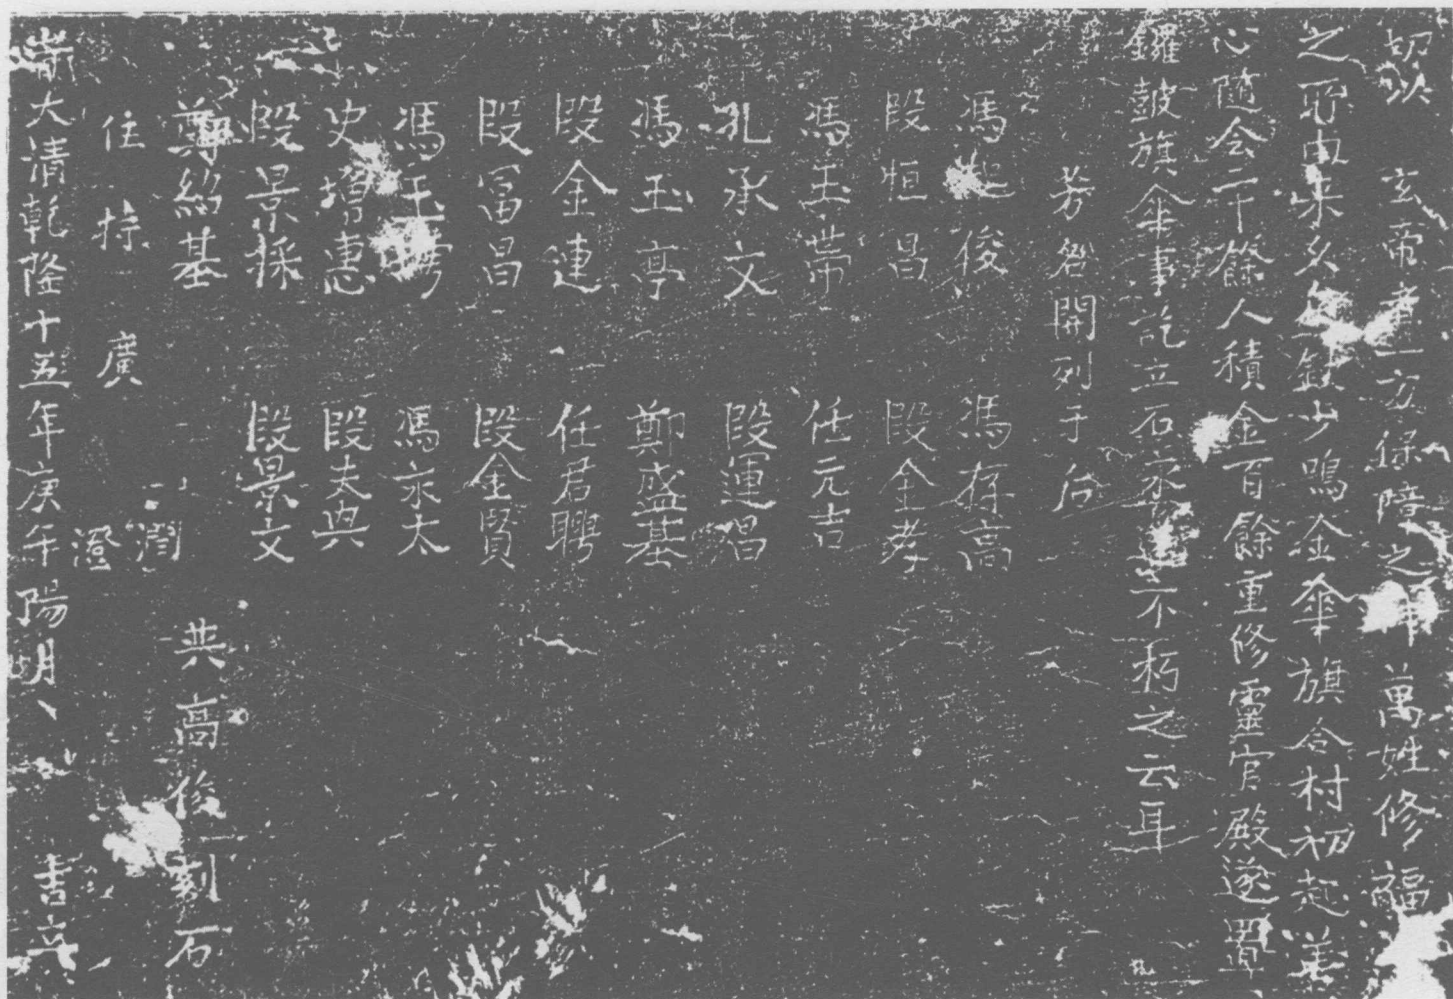 切以　玄帝者一方保障之神萬姓修福
之所由来久缺少鳴金傘旗合村初起善
心隨会二十餘人積金百餘重修靈官殿遂置
鑼鼓旗傘事訖立石永不朽之云耳
芳名開列于后
馮起俊　馮存高
段恒昌　段全孝
馮玉帶　任元吉
孔承文　段運昌
馮玉亭　鄭盛基
段金連　任君聘
段富昌　段金賢
馮玉聘　馮永太
史增惠　段夫興
段景採　段景文
鄭紹基　共高俊刻石
住持　廣　澗
澄
大清乾隆十五年庚午陽明、書立